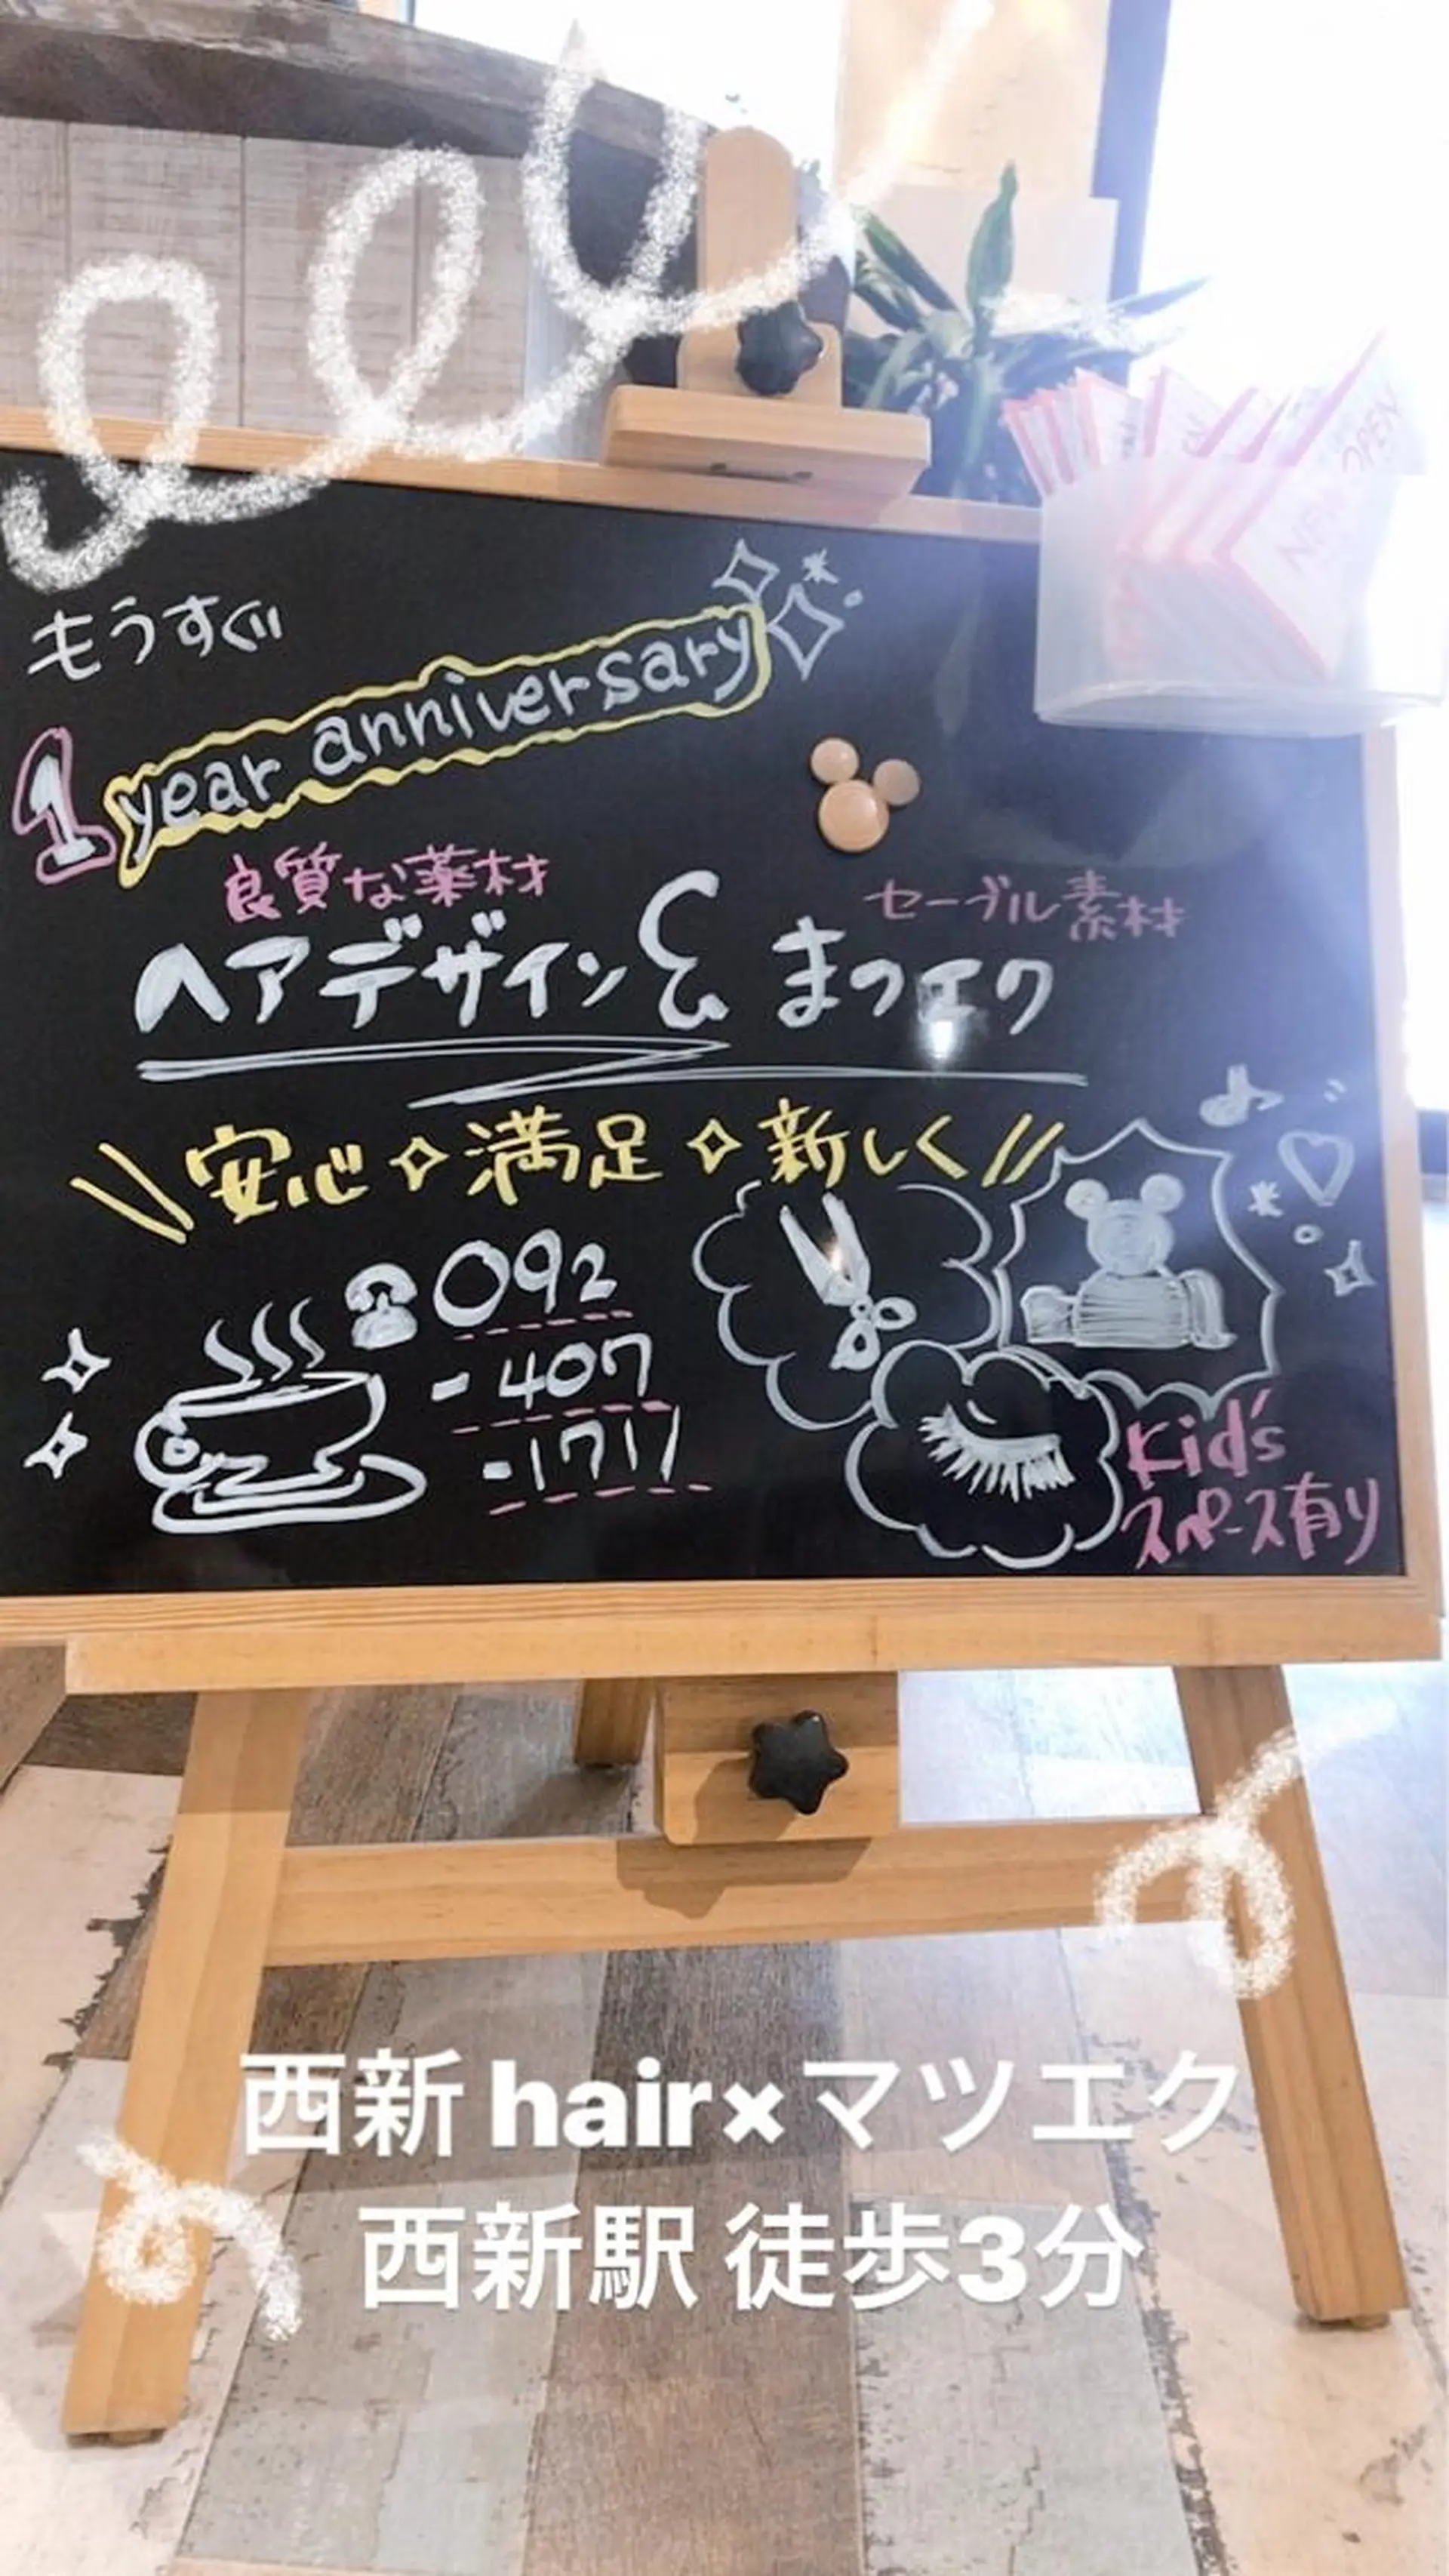 もうすぐ
1 year anniversary
良質な薬材
セーブル素材
ヘアデザイン & まつエク
\\ 安心 ✧ 満足 ✧ 新しく //
☎ 092
- 407
- 1717
Kid's
スペース有り
OPEN
西新 hair×マツエク
西新駅 徒歩3分